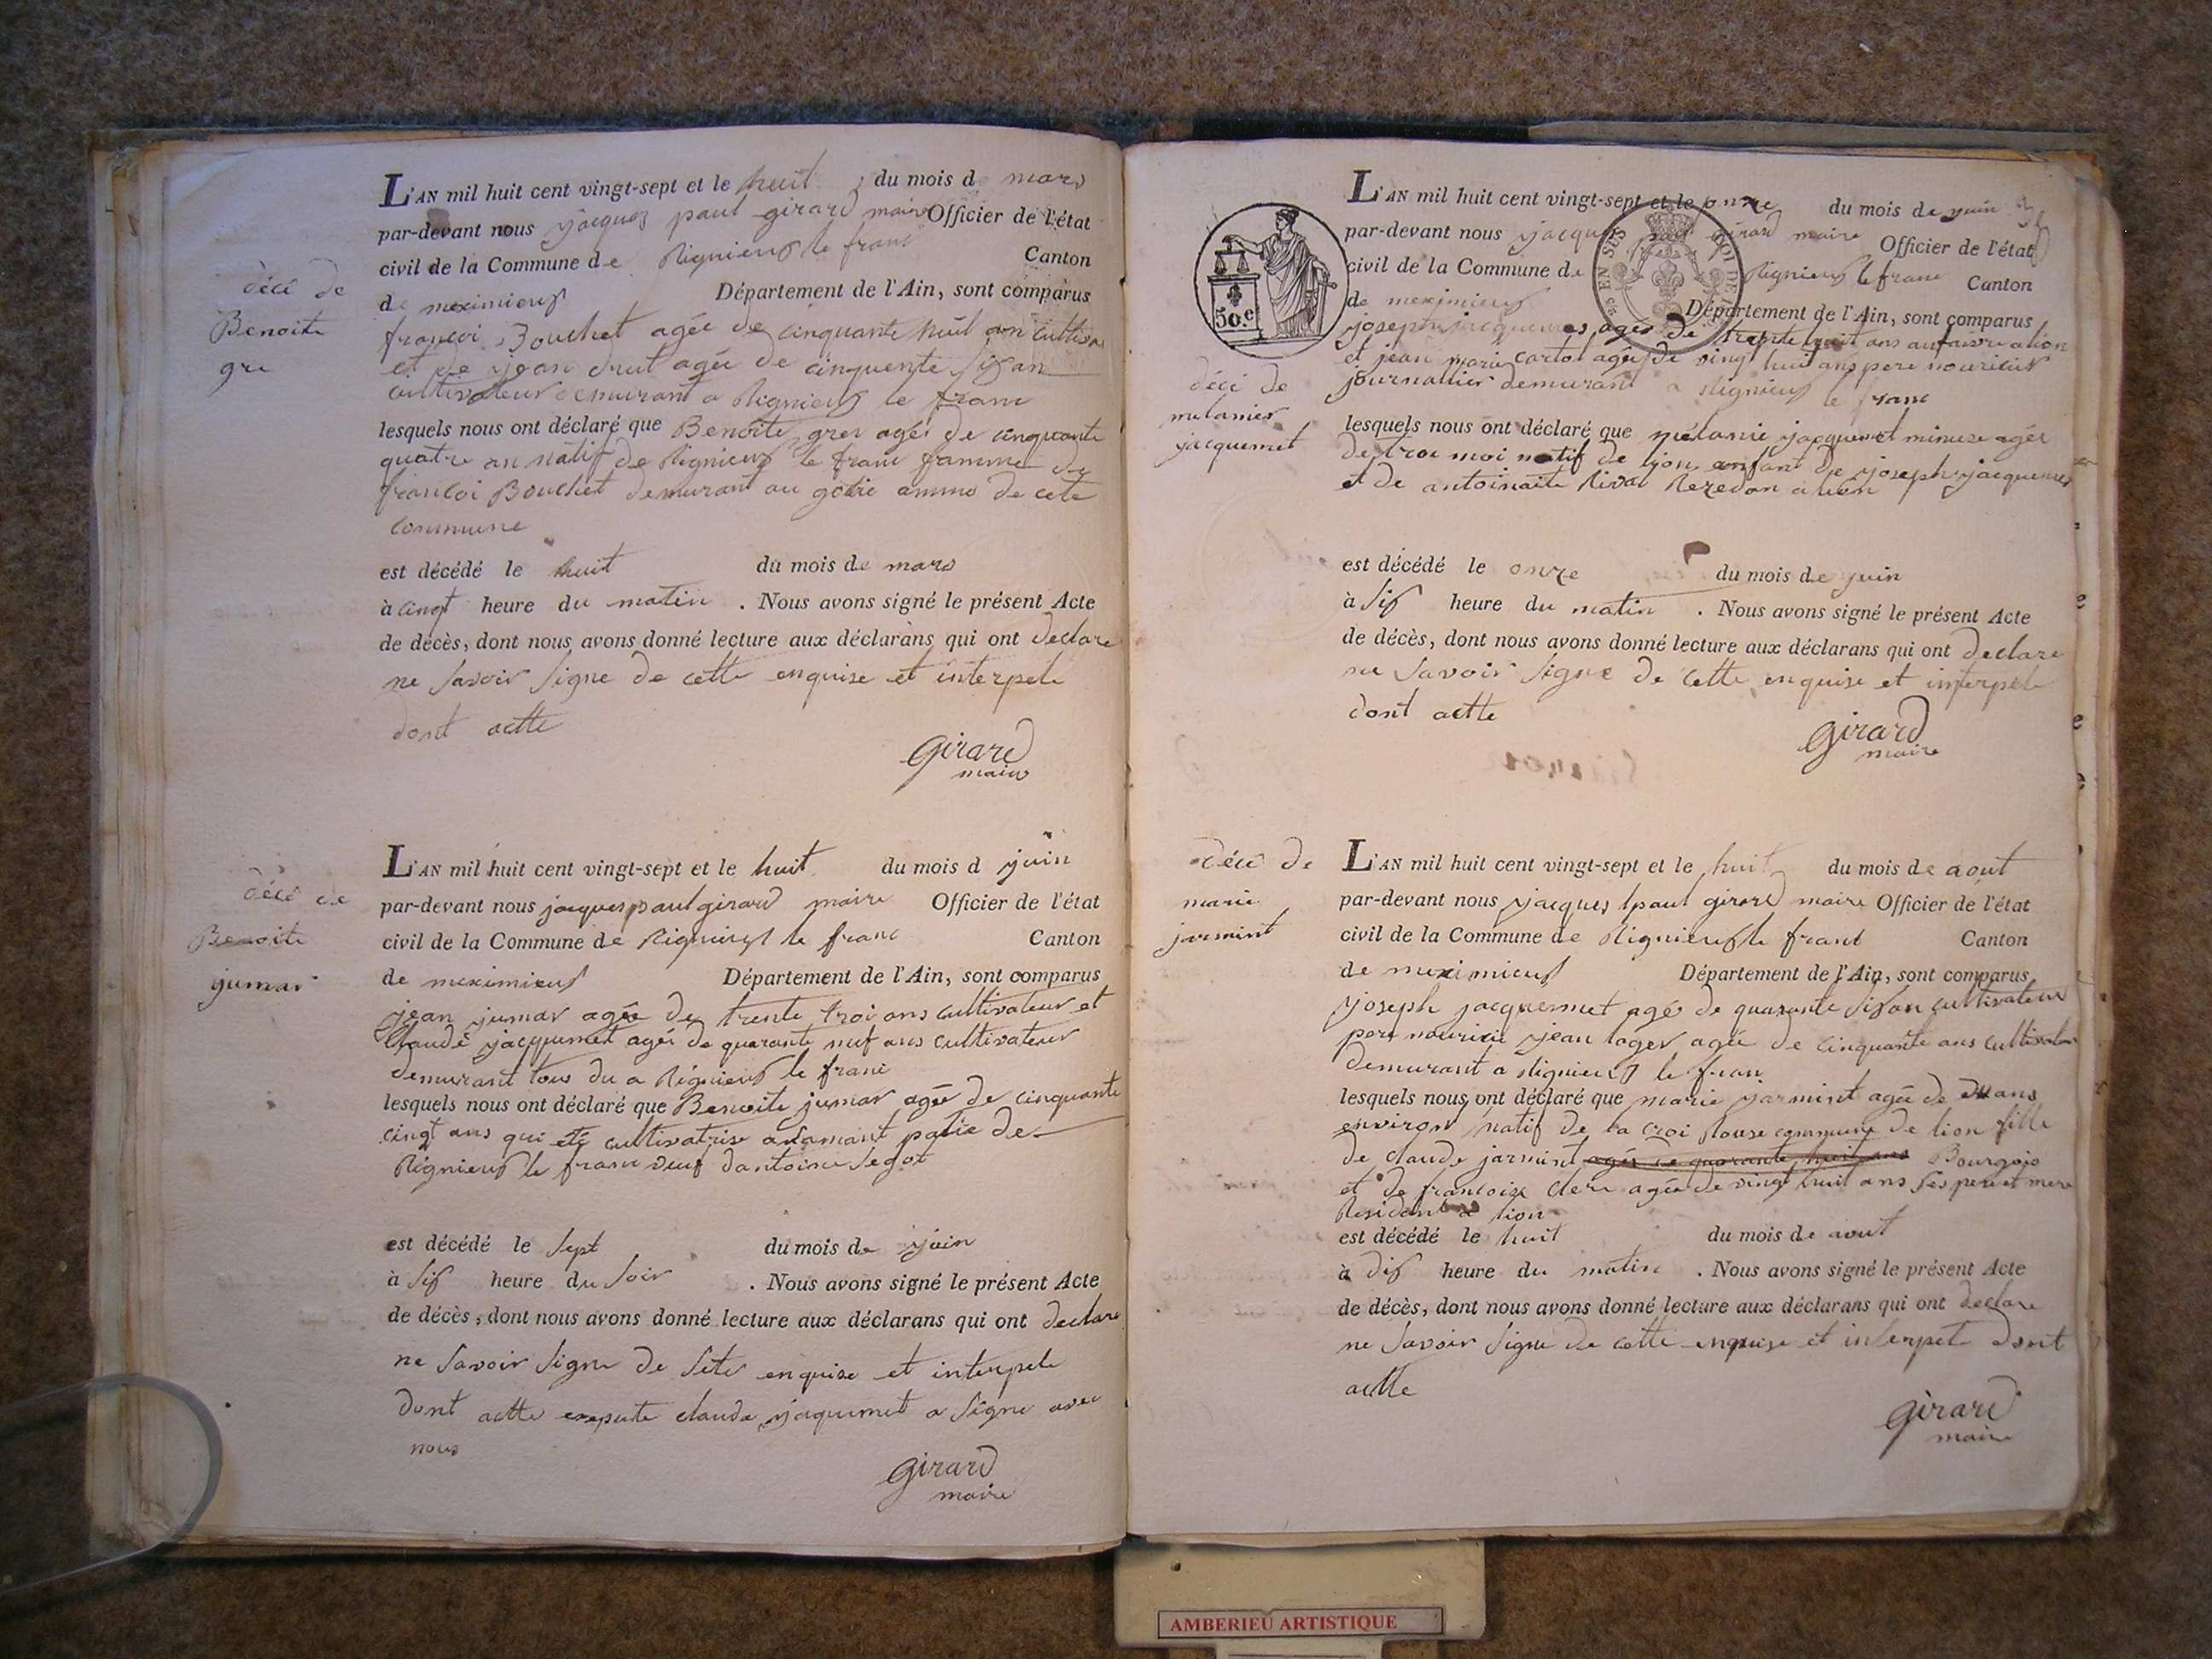 décè de
Benoite
gre
L'AN mil huit cent vingt-sept et le huit du mois d mars
par-devant nous jacques paul girard maire Officier de l'état
civil de la Commune de Rignieux le franc Canton
de meximieux Département de l'Ain, sont comparus
françoi Bouchet agée de cinquante huit an
et de jean drut agée de cinquente six an
cultivateur demurant a Rignieux le franc
lesquels nous ont déclaré que Benoite grer agée de cinquante
quatre an natif de Rignieux le franc famme de
françoi Bouchet demurant au de cete
commune
est décédé le huit du mois de mars
à cinqt heure du matin . Nous avons signé le présent Acte
de décès, dont nous avons donné lecture aux déclarans qui ont declare
ne savoir signe de cette enquise et interpele
dont actte
Girard
maire
décè de
Benoite
jumar
L'AN mil huit cent vingt-sept et le huit du mois d juin
par-devant nous jacques paul girard maire Officier de l'état
civil de la Commune de Rignieux le franc Canton
de meximieux Département de l'Ain, sont comparus
jean jumar agée de trente troi ans cultivateur et
Claude jacquemet agée de quarante nuf ans cultivateur
demurant tous du a Rignieux le franc
lesquels nous ont déclaré que Benoite jumar agée de cinquante
cingt ans qui eté cultivatrise de
Rignieux le franc veuf dantoine segot
est décédé le sept du mois de juin
à six heure du soir . Nous avons signé le présent Acte
de décès, dont nous avons donné lecture aux déclarans qui ont declare
ne savoir signe de sete enquise et interpele
dont actte claude jaquemet a signe avec
nous
Girard
maire
50.c
L'AN mil huit cent vingt-sept et le onze du mois de juin
par-devant nous jacque paul girard maire Officier de l'état
civil de la Commune de Rignieux le franc Canton
de meximieux Département de l'Ain, sont comparus
joseph jacquemes agée de trente huit ans a lion
et jean marie cartot agée de vingt huit ans pere nouricier
journalier demurant a Rignieux le franc
décè de
melanier
jacquemet
lesquels nous ont déclaré que mélanie jacquemet agée
de troi moi natif de lion anfant de joseph jacquemes
et de antoinaite Rival a lion
est décédé le onze du mois de juin
à six heure du matin . Nous avons signé le présent Acte
de décès, dont nous avons donné lecture aux déclarans qui ont declare
ne savoir signe de cette enquise et interpele
dont actte
Girard
maire
décè de
marie
jarmint
L'AN mil huit cent vingt-sept et le huit du mois de aout
par-devant nous jacques paul girard maire Officier de l'état
civil de la Commune de Rignieux le franc Canton
de meximieux Département de l'Ain, sont comparus
joseph jacquemet agée de quarante six an cultivateur
pere nouricie jean lager agée de cinquante ans cultivateur
demurant a Rignieux le fran
lesquels nous ont déclaré que marie jarmint agée de ans
environ natif de la croi Rouse commune de lion fille
de claude jarmint agée de quarante huit ans Bourgois
et de francoise clere agée de vingt huit ans ses pere et mere
Residant a lion
est décédé le huit du mois de aout
à dix heure du matin . Nous avons signé le présent Acte
de décès, dont nous avons donné lecture aux déclarans qui ont declare
ne savoir signe de cette enquise et interpet dont
actte
Girard
maire
AMBERIEU ARTISTIQUE